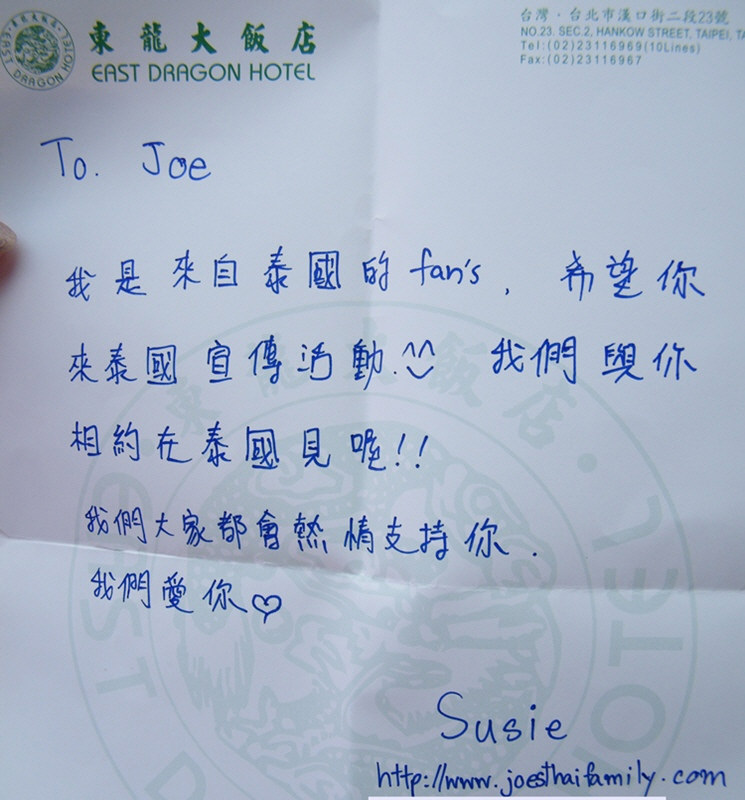 東龍大飯店
EAST DRAGON HOTEL
EAST DRAGON HOTEL
台灣．台北市漢口街二段23號
NO.23. SEC.2, HANKOW STREET, TAIPEI, TA
Tel:(02)23116969(10Lines)
Fax:(02)23116967
To. Joe
我是來自泰國的 fan's , 希望你
來泰國宣傳活動.^^ 我們與你
相約在泰國見喔!!
我們大家都會熱情支持你.
我們愛你♡
Susie
http://www.joesthaifamily.com
東龍大飯店
EAST DRAGON HOTEL